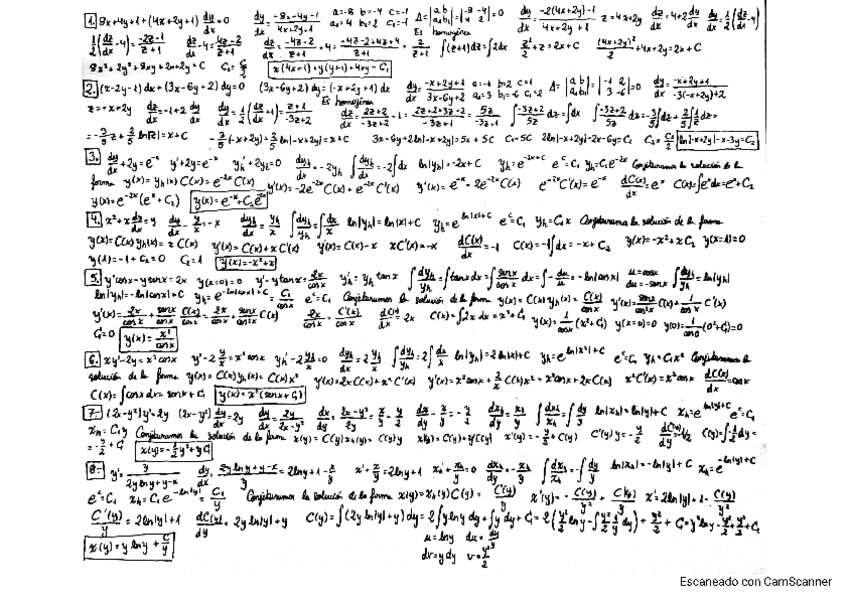 1. 8x+4y+1+(4x+2y+1) dy/dx=0 dy/dx = -8x-4y-1 / 4x+2y+1 a=-8 b=-4 c=-1 Es homogénea dy/dx = -2(4x+2y)-1 / 4x+2y+1 z=4x+2y dz/dx=4+2 dy/dx dy/dx = 1/2 (dz/dx -4)
1/2 (dz/dx -4) = -2z-1 / z+1 dz/dx -4 = -4z-2 / z+1 dz/dx = -4z-2 / z+1 +4 = -4z-2+4z+4 / z+1 = 2 / z+1 ∫(z+1)dz=∫2dx z²/2 + z=2x+C (4x+2y)²/2 +4x+2y=2x+C
8x²+2y²+8xy+2x+2y=C x(4x+1)+y(y+1)+4xy=C₁
2. (x-2y-1) dx+(3x-6y+2) dy=0 (3x-6y+2) dy=(-x+2y+1) dx dy/dx = -x+2y+1 / 3x-6y+2 a=-1 b=2 c=1 dy/dx = -x+2y+1 / -3(-x+2y)+2
z=-x+2y dz/dx=-1+2 dy/dx dy/dx = 1/2 (dz/dx +1) = z+1 / -3z+2 Es homogénea dz/dx = 2z+2 / -3z+2 -1 = 2z+2+3z-2 / -3z+2 = 5z / -3z+2 ∫ -3z+2 / 5z dz=∫dx
= -3/5 z+ 2/5 ln|z|=x+C -3/5 (-x+2y)+ 2/5 ln|-x+2y|=x+C 3x-6y+2ln|-x+2y|=5x+5C C₁=5C 2ln|-x+2y|-2x-6y=C₁ C₂= C₁/2 ln|-x+2y|-x-3y=C₂
3. dy/dx +2y=e⁻ˣ y'+2y=e⁻ˣ y'h+2yh=0 dyh/dx=-2yh ∫dyh/yh=-2∫dx ln|yh|=-2x+C yh=e⁻²ˣ⁺ᶜ eᶜ=C₁ yh=C₁e⁻²ˣ Conjeturamos la solución de la
forma y(x)=yh(x)C(x)=e⁻²ˣC(x) y'(x)=-2e⁻²ˣC(x)+e⁻²ˣC'(x) y'(x)=e⁻ˣ-2e⁻²ˣC(x) e⁻²ˣC'(x)=e⁻ˣ dC(x)/dx=eˣ C(x)=∫eˣdx=eˣ+C₂
y(x)=e⁻ˣ+C₂e⁻²ˣ
4. x²+x dy/dx=y dy/dx - y/x=-x dyh/dx = yh/x ∫dyh/yh=∫dx/x ln|yh|=ln|x|+C yh=e^ln|x|+C eᶜ=C₁ yh=C₁x Conjeturamos la solución de la forma
y(x)=C(x)yh(x)=xC(x) y'(x)=C(x)+xC'(x) y'(x)=C(x)-x xC'(x)=-x dC(x)/dx=-1 C(x)=-1∫dx=-x+C₂ y(x)=-x²+xC₂ y(x=1)=0
y(1)=-1+C₂=0 C₂=1 y(x)=-x²+x
5. y'cosx-ysenx=2x y(x=0)=0 y'-ytanx= 2x/cosx y'h=yh tanx ∫dyh/yh=∫tanxdx=∫ senx/cosx dx=∫-du/u=-ln|cosx| u=cosx du=-senx ∫dyh/yh=ln|yh|
ln|yh|=-ln|cosx|+C yh=e^-ln|cosx|+C= C₁/cosx eᶜ=C₁ Conjeturamos la solución de la forma y(x)=C(x)yh(x)= C(x)/cosx y'(x)= senx/cos²x C(x)+ 1/cosx C'(x)
y'(x)= 2x/cosx + senx/cosx C(x)/cosx = 2x/cosx + senx/cos²x C(x) 2x/cosx = C'(x)/cosx dC(x)/dx=2x C(x)=∫2xdx=x²+C₁ y(x)= 1/cosx (x²+C₁) y(x=0)=0 y(0)= 1/cos0 (0²+C₁)=0
C₁=0 y(x)= x²/cosx
6. xy'-2y=x³cosx y'-2 y/x=x²cosx y'h-2 yh/x=0 dyh/dx=2 yh/x ∫dyh/yh=2∫dx/x ln|yh|=2ln|x|+C yh=e^ln|x²|+C eᶜ=C₁ yh=C₁x² Conjeturamos la
solución de la forma y(x)=C(x)yh(x)=C(x)x² y'(x)=2xC(x)+x²C'(x) y'(x)=x²cosx+ 2/x C(x)x²=x²cosx+2xC(x) x²C'(x)=x²cosx dC(x)/dx=cosx
C(x)=∫cosxdx=senx+C₁ y(x)=x²(senx+C₁)
7- (2x-y²)y'=2y (2x-y²) dy/dx=2y dy/dx= 2y/2x-y² dx/dy= 2x-y²/2y = x/y - y/2 dx/dy - x/y=- y/2 dxh/dy= xh/y ∫dxh/xh=∫dy/y ln|xh|=ln|y|+C xh=e^ln|y|+C eᶜ=C₁
xh=C₁y Conjeturamos la solución de la forma x(y)=C(y)xh(y)=C(y)y x'(y)=C(y)+yC'(y) x'(y)=- y/2 +C(y) C'(y)y=- y/2 dC(y)/dy=-1/2 C(y)=∫-1/2 dy=
=- y/2 +C₁ x(y)=- 1/2 y²+yC₁
8- y'= y / 2y lny+y-x dy/dx dx/dy= 2y ln|y|+y-x / y = 2ln|y|+1- x/y x'+ x/y=2ln|y|+1 x'h+ xh/y=0 dxh/dy=- xh/y ∫dxh/xh=-∫dy/y ln|xh|=-ln|y|+C xh=e^-ln|y|+C
eᶜ=C₁ xh=C₁e^-ln|y|= C₁/y Conjeturamos la solución de la forma x(y)=xh(y)C(y)= C(y)/y x'(y)=- C(y)/y² + C'(y)/y x'=2ln|y|+1- C(y)/y²
C'(y)/y=2ln|y|+1 dC(y)/dy=2y ln|y|+y C(y)=∫(2y ln|y|+y)dy=2∫y lny dy+∫y dy+C₁=2( y²/2 lny-∫ y²/2 1/y dy)+ y²/2 +C₁=y²lny- y²/2 + y²/2 +C₁
u=lny du= dy/y
x(y)=y lny+ C/y dv=ydy v= y²/2
Escaneado con CamScanner